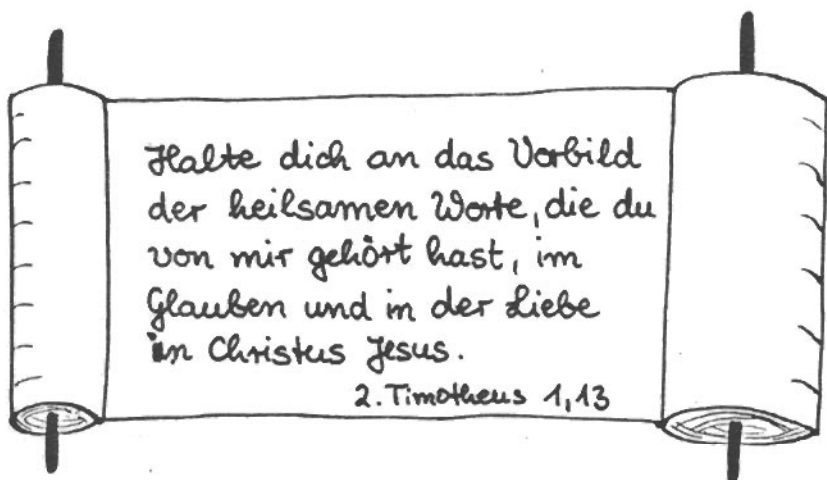 Halte dich an das Vorbild
der heilsamen Worte, die du
von mir gehört hast, im
Glauben und in der Liebe
in Christus Jesus.
2. Timotheus 1,13